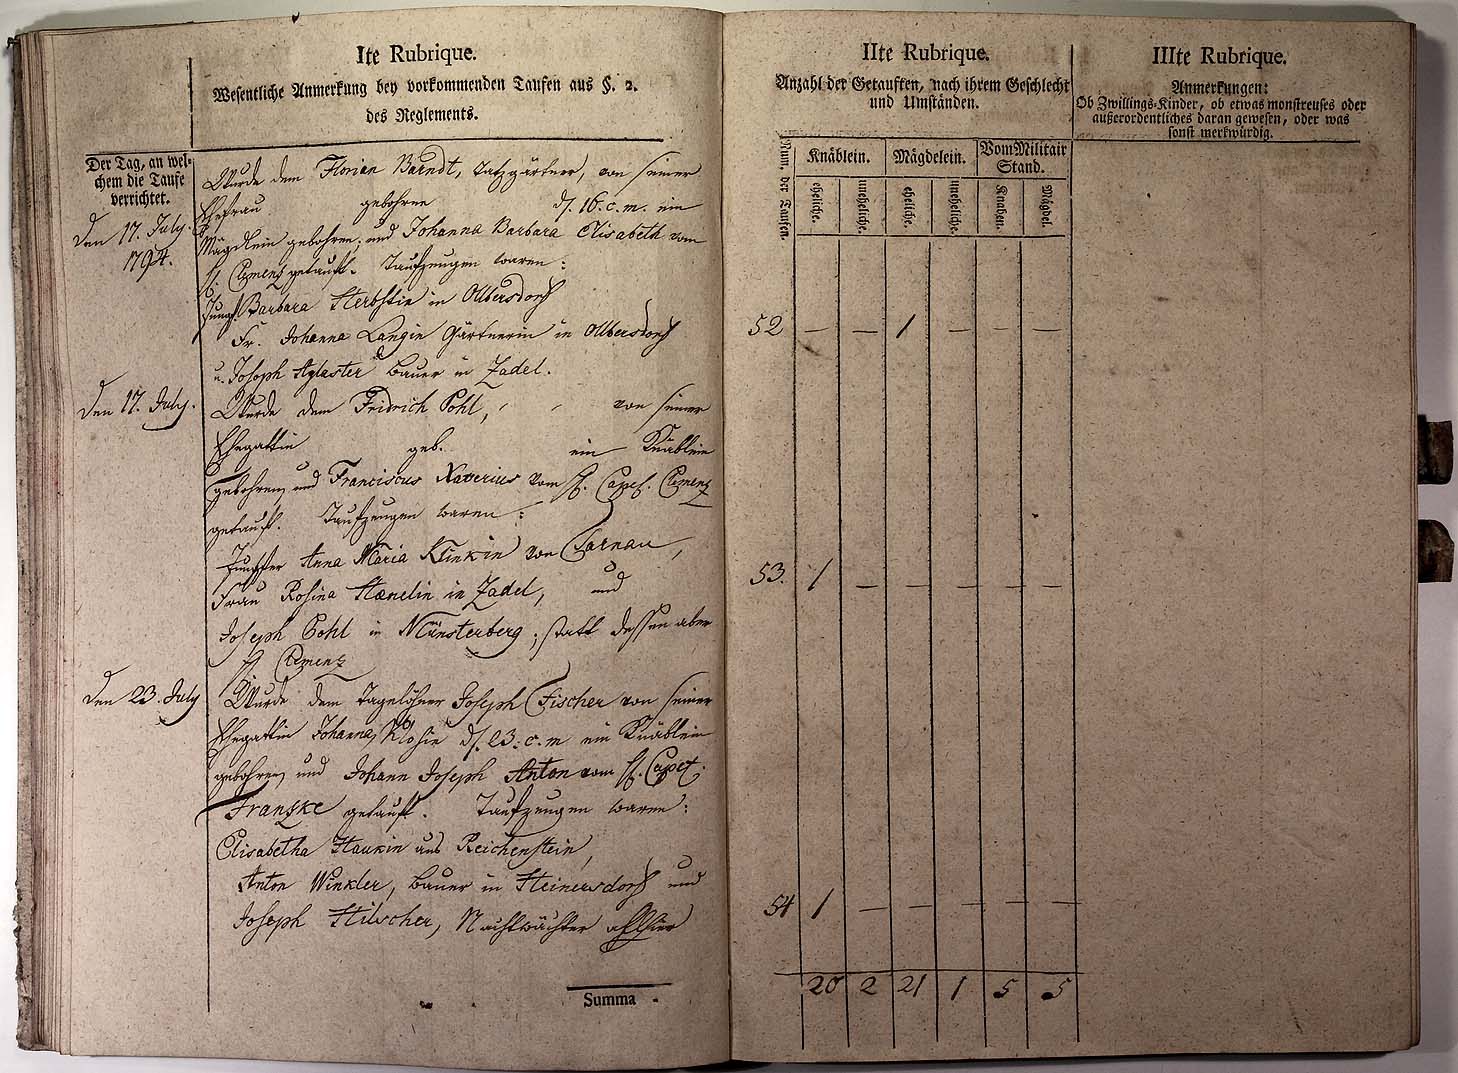 Ite Rubrique.
Wesentliche Anmerkung bey vorkommenden Taufen aus §. 2.
des Reglements.
Der Tag, an wel-
chem die Taufe
verrichtet.
den 17. July.
1794.
Wurde dem Florian Barndt, von seiner
Ehefrau gebohrne d. 16. c. m. ein
Mägdlein gebohren, und Johanna Barbara Elisabeth vom
Clemenz getauft. Taufzeugen waren:
Jungf. Barbara in Olbersdorf
Fr. Johanna Langin Gärtnerin in Olbersdorf
u. Joseph Bauer in Zadel.
den 17. July.
Wurde dem Fridrich Pohl, von seiner
Ehegattin geb. ein Knäblein
gebohren, und Franciscus Xaverius vom H. Clemenz
getauft. Taufzeugen waren:
Jungfer Anna Maria Klinkin von Tarnau,
Frau Rosina in Zadel, und
Joseph Pohl in Münsterberg, statt dessen aber
Clemenz
den 23. July
Wurde dem Tagelöhner Joseph Fischer von seiner
Ehegattin Johanna, Klosin d. 23. c. m ein Knäblein
gebohren, und Johann Joseph Anton vom H. Capel.
Franzke getauft. Taufzeugen waren:
Elisabetha Haukin aus Reichenstein,
Anton Winkler, Bauer in Heinersdorf und
Joseph Hilscher, Nachtwächter allhier
Summa
IIte Rubrique.
Anzahl der Getauften, nach ihrem Geschlecht
und Umständen.
Num. der Taufen.
Knäblein. Mägdelein. Vom Militair
Stand.
eheliche. uneheliche. eheliche. uneheliche. Knaben. Mägdel.
52 — — 1 — — —
53. 1 — — — — —
54 1 — — — — —
20 2 21 1 5 5
IIIte Rubrique.
Anmerkungen:
Ob Zwillings-Kinder, ob etwas monstreuses oder
außerordentliches daran gewesen, oder was
sonst merkwürdig.